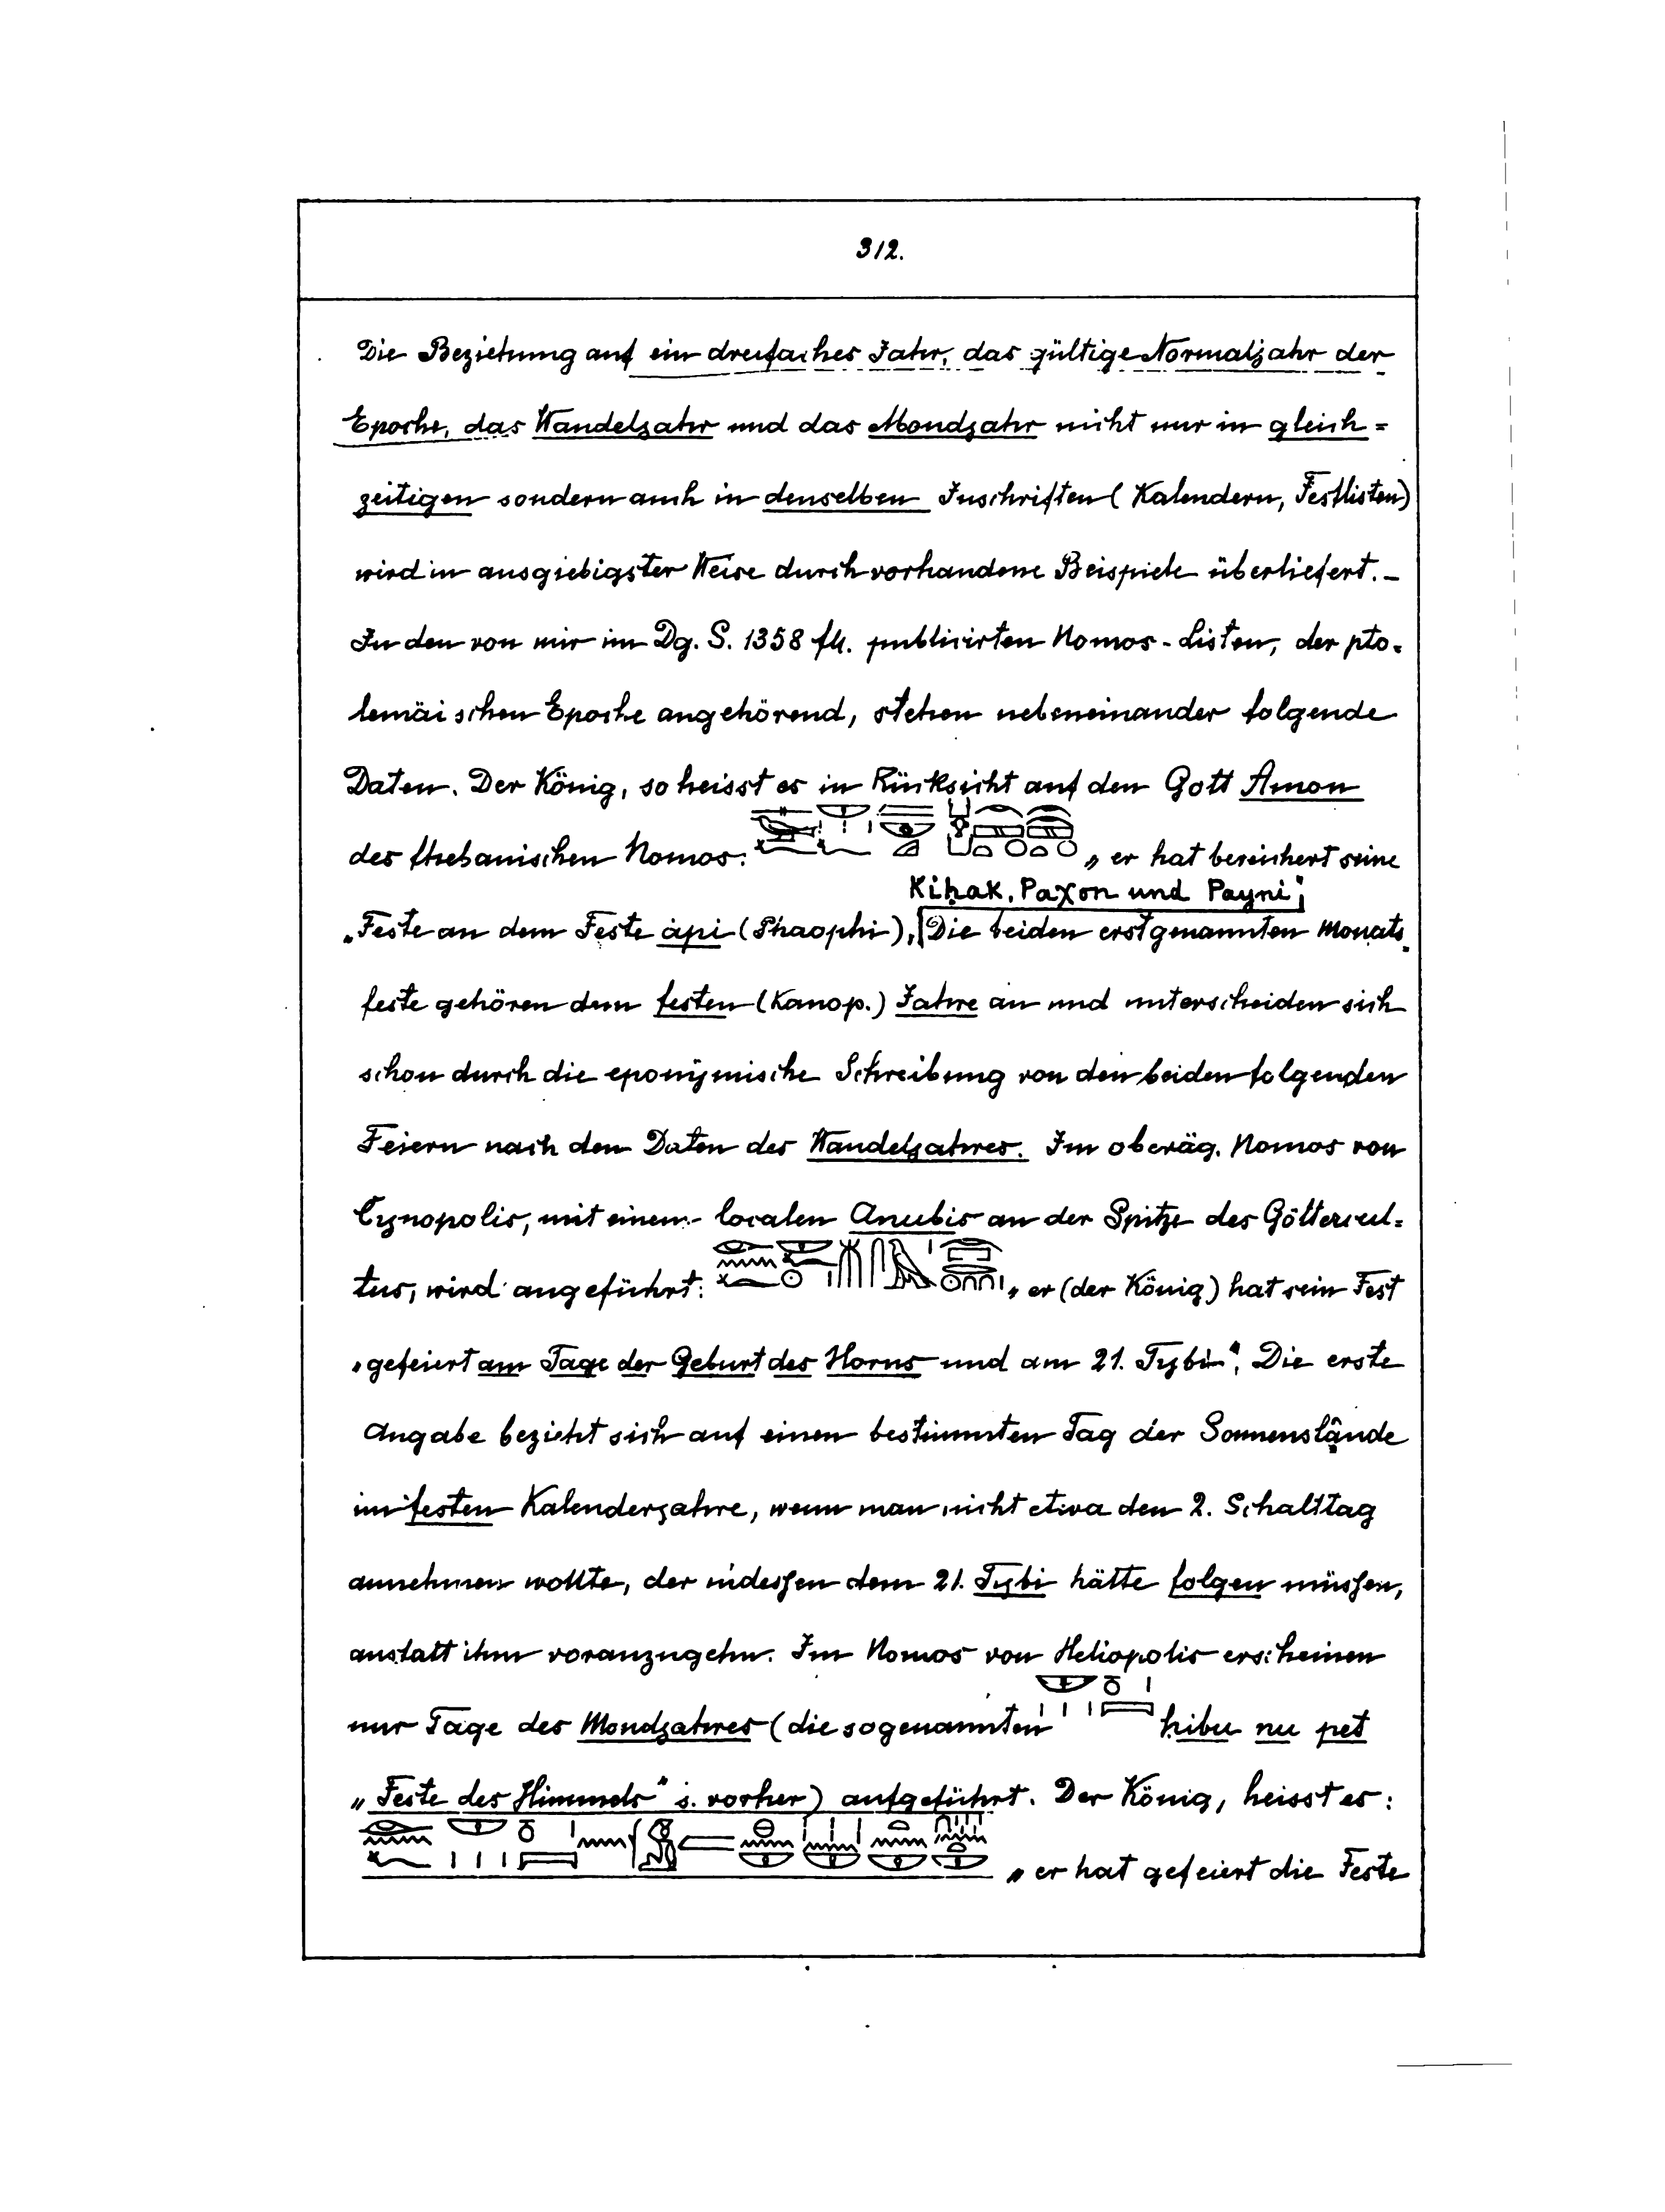 312.
Die Beziehung auf ein dreifaches Jahr, das gültige Normaljahr der
Epoche, das Wandeljahr und das Mondjahr nicht nur in gleich=
zeitigen sondern auch in denselben Inschriften (Kalendern, Festlisten)
wird in ausgiebigster Weise durch vorhandene Beispiele überliefert. –
In den von mir im Dg. S. 1358 fll. publicirten Nomos-Listen, der pto=
lemäischen Epoche angehörend, stehen nebeneinander folgende
Daten. Der König, so heisst es in Rücksicht auf den Gott Amon
des thebanischen Nomos: „er hat bereichert seine
Kiḥak, Paχon und Payni“;
„Feste an dem Feste àpi (Phaophi), Die beiden erstgenannten Monats=
feste gehören dem festen (Kanop.) Jahre an und unterscheiden sich
schon durch die eponymische Schreibung von den beiden folgenden
Feiern nach den Daten des Wandeljahres. Im oberäg. Nomos von
Cynopolis, mit einem localen Anubis an der Spitze des Göttercul=
tus, wird angeführt: „er (der König) hat sein Fest
„gefeiert am Tage der Geburt des Horus und am 21. Tybi“. Die erste
Angabe bezieht sich auf einen bestimmten Tag der Sonnenstände
im festen Kalenderjahre, wenn man nicht etwa den 2. Schalttag
annehmen wollte, der indessen dem 21. Tybi hätte folgen müssen,
anstatt ihm voranzugehn. Im Nomos von Heliopolis erscheinen
nur Tage des Mondjahres (die sogenannten ḥibu nu pet
„Feste des Himmels“ s. vorher) aufgeführt. Der König, heisst es:
„er hat gefeiert die Feste